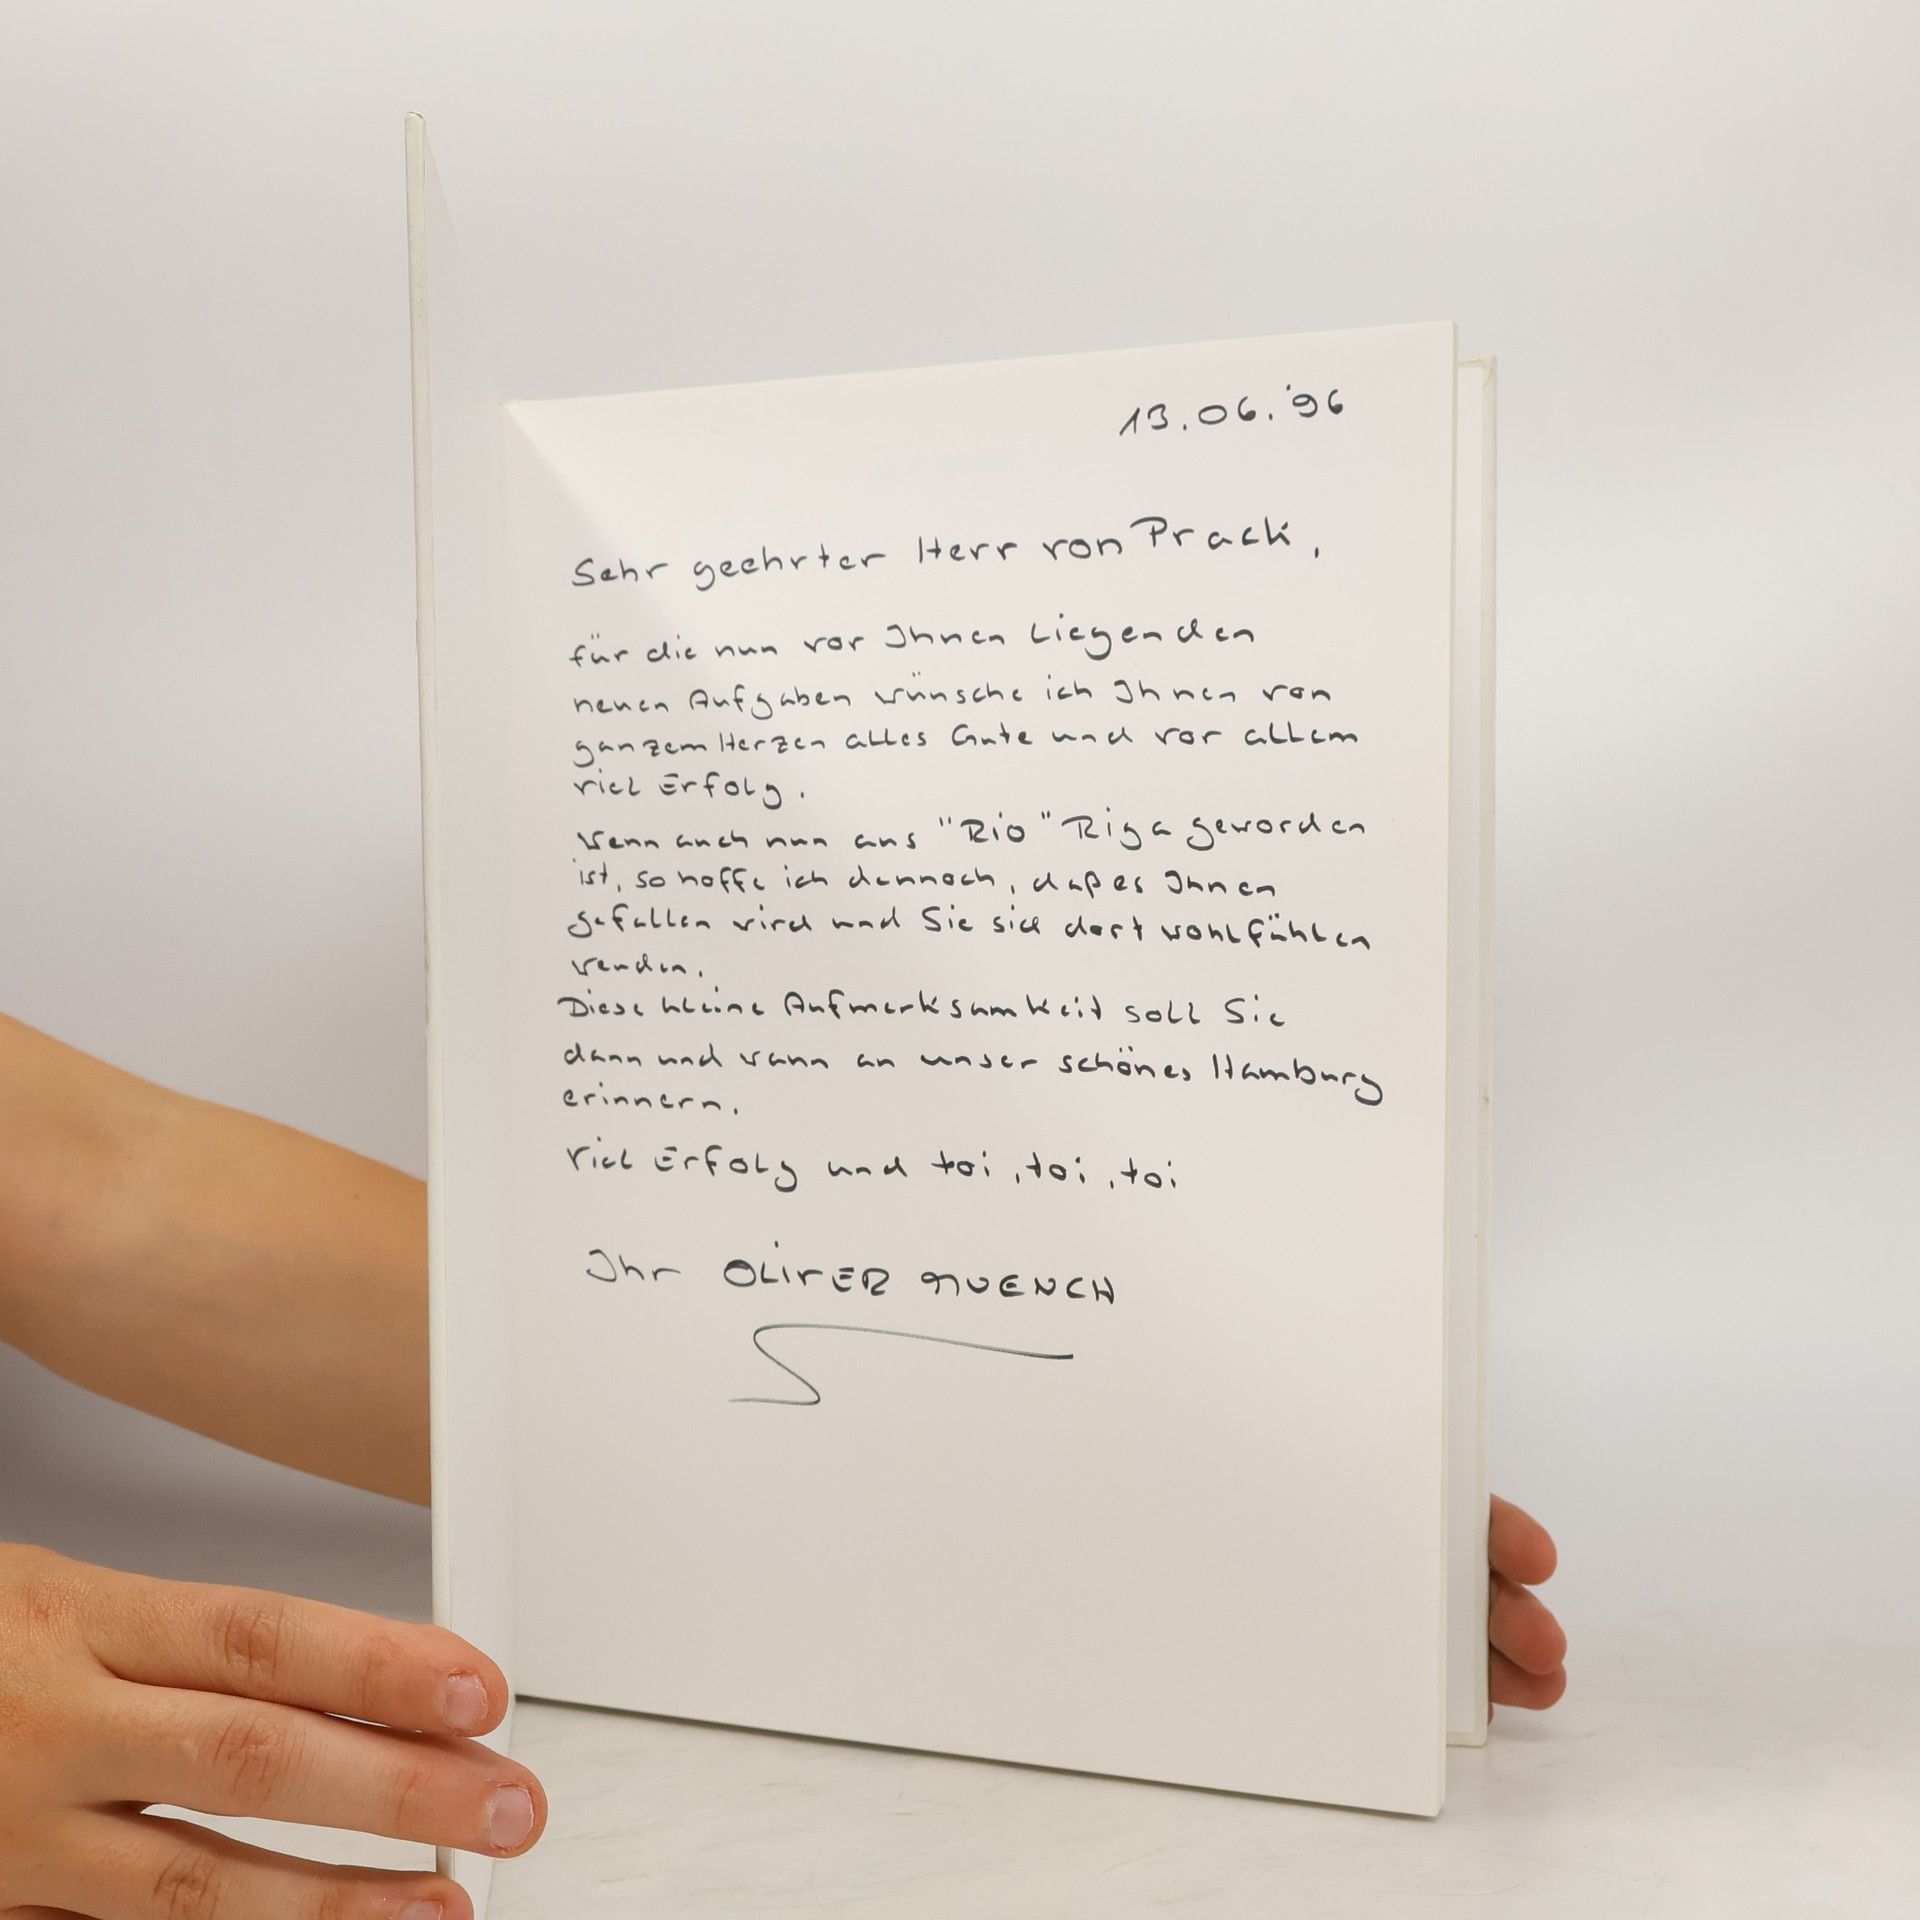 13.06.'96
Sehr geehrter Herr von Prack,
für die nun vor Ihnen liegenden
neuen Aufgaben wünsche ich Ihnen von
ganzem Herzen alles Gute und vor allem
viel Erfolg.
Wenn auch nun aus "Rio" Riga geworden
ist, so hoffe ich dennoch, daß es Ihnen
gefallen wird und Sie sich dort wohlfühlen
werden.
Diese kleine Aufmerksamkeit soll Sie
dann und wann an unser schönes Hamburg
erinnern.
Viel Erfolg und toi, toi, toi
Ihr OLIVER MUENCH